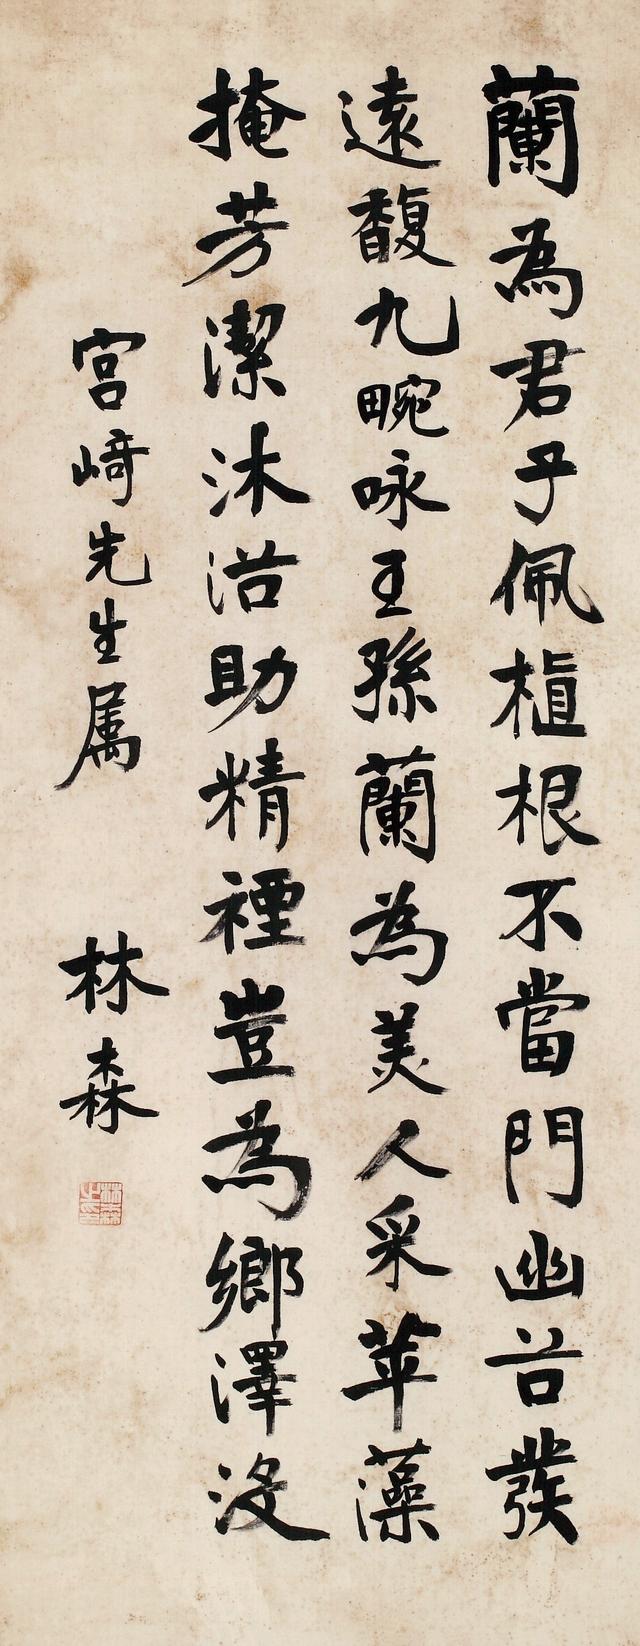 蘭為君子佩植根不當門幽谷發
遠馥九畹咏王孫蘭為美人采苹藻
掩芳潔沐浴助精禋豈為鄉澤沒
宮﨑先生属
林森
林森之印